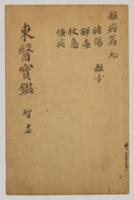 雜病篇 九
諸傷
解毒
救急
怪疾
雜方
東醫寶鑑